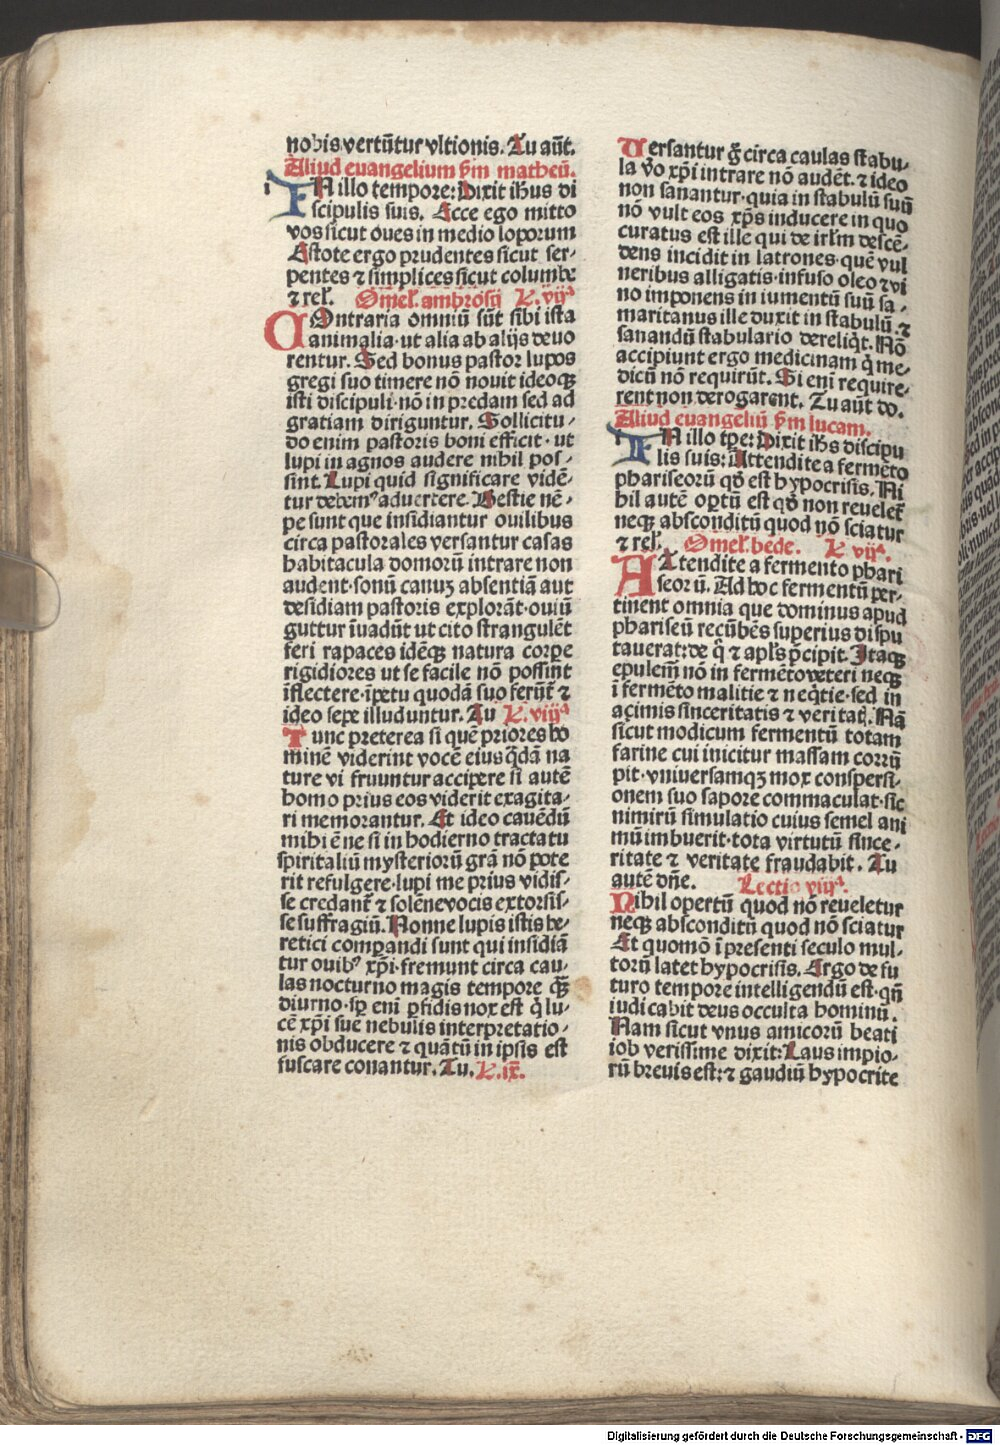 nobis vertūtur vltionis. Tu aūt.
Aliud evangelium ẜm matheū.
i
IN illo tempore: Dixit ihūs di
scipulis suis. Ecce ego mitto
vos sicut oues in medio loporum
Estote ergo prudentes sicut ser-
pentes ⁊ simplices sicut columbe
⁊ rel̄. Omel̄. ambrosij L. vijᵃ
COntraria omniū sūt sibi ista
animalia· ut alia ab alijs deuo
rentur. Sed bonus pastor lupos
gregi suo timere nō nouit ideoqꝫ
isti discipuli· nō in predam sed ad
gratiam diriguntur. Sollicitu-
do enim pastoris boni efficit· ut
lupi in agnos audere nihil pos-
sint. Lupi quid significare vidē-
tur debemꝰ aduertere. Bestie nē-
pe sunt que insidiantur ouilibus
circa pastorales versantur casas
habitacula domorū intrare non
audent· sonū canuꝫ absentiā aut
desidiam pastoris explorāt· ouiū
guttur īuadūt ut cito strangulēt
feri rapaces idēqꝫ natura corpe
rigidiores ut se facile nō possint
īflectere· īpetu quodā suo ferūt̄ ⁊
ideo sepe illuduntur. Tu L. viijᵃ
Tunc preterea si quē priores ho
minē viderint vocē eius q̄dā na
ture vi fruuntur accipere si autē
homo prius eos viderit exagita-
ri memorantur. Et ideo cauēdū
mihi ē ne si in hodierno tractatu
spiritaliū mysteriorū grā nō pote
rit refulgere· lupi me prius vidis-
se credant̄ ⁊ solēne vocis extorsis-
se suffragiū. Nonne lupis istis he-
retici comparandi sunt qui insidiā
tur ouibꝰ xp̄i· fremunt circa cau-
las nocturno magis tempore qꝫ
diurno· sp̄ enī ꝑfidis nox est q̄ lu-
cē xp̄i sue nebulis interpretatio-
nis obducere ⁊ quātū in ipsis est
fuscare conantur. Tu. L. ix.
Versantur ḡ circa caulas stabu-
la v̄o xp̄i intrare nō audēt. ⁊ ideo
non sanantur· quia in stabulū suū
nō vult eos xp̄s inducere in quo
curatus est ille qui de irl̄m descē-
dens incidit in latrones· quē vul
neribus alligatis· infuso oleo ⁊ vi
no imponens in iumentū suū sa-
maritanus ille duxit in stabulū· ⁊
sanandū stabulario dereliq̄t. Nō
accipiunt ergo medicinam q̄ me-
dicū nō requirūt. Si enī require-
rent non derogarent. Tu aūt do.
Aliud euangeliū ẜm lucam.
IN illo tꝑe: Dixit ihs̄ discipu
lis suis: Attendite a fermēto
phariseorū qd̄ est hypocrisis. Ni
hil autē oꝑtū est qd̄ non reuelet̄
neqꝫ absconditū quod nō sciatur
⁊ rel̄. Omel̄. bede. L. vijᵃ.
ATtendite a fermento phari
seorū. Ad hoc fermentū per-
tinent omnia que dominus apud
phariseū recūbēs superius dispu
tauerat: de q̄ ⁊ apl̄s p̄cipit. Itaqꝫ
epulemr̄ nō in fermēto veteri neqꝫ
ī fermēto malitie ⁊ neq̄tie· sed in
açimis sinceritatis ⁊ veritat̄. Nā
sicut modicum fermentū totam
farine cui inicitur massam corrū
pit· vniuersamqꝫ mox conspersi-
onem suo sapore commaculat· sic
nimirū simulatio cuius semel ani
mū imbuerit· tota virtutū since-
ritate ⁊ veritate fraudabit. Tu
autē dn̄e. Lectio viijᵃ.
Nihil opertū quod nō reueletur
neqꝫ absconditū quod nō sciatur
Et quomō ī presenti seculo mul-
torū latet hypocrisis. Ergo de fu
turo tempore intelligendū est· qn̄
iudicabit deus occulta hominū.
Nam sicut vnus amicorū beati
iob verissime dixit: Laus impio-
rū breuis est: ⁊ gaudiū hypocrite
Digitalisierung gefördert durch die Deutsche Forschungsgemeinschaft - DFG